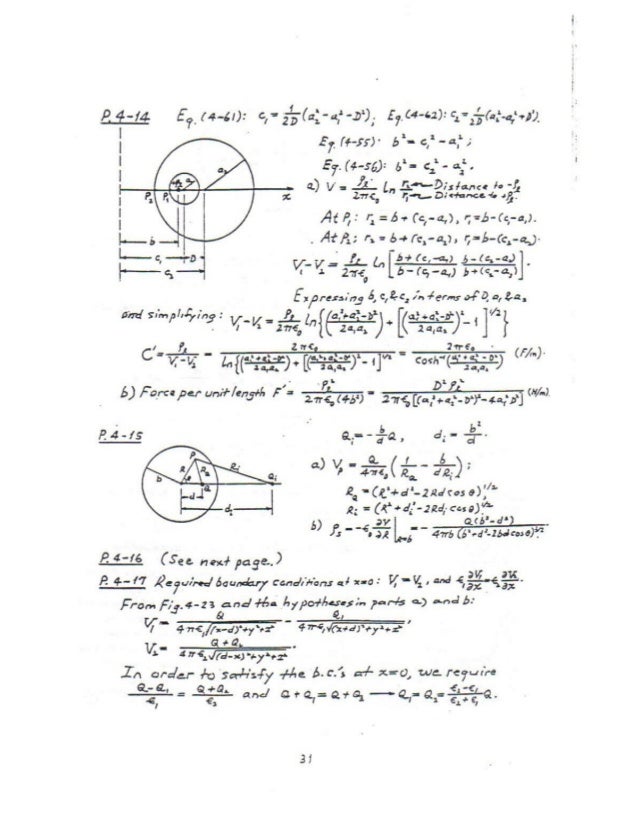 P. 4-14 Eq. (4-61): c₁ = 1/2D (a₂² - a₁² - D²); Eq. (4-62): c₂ = 1/2D (a₂² - a₁² + D²).
Eq. (4-55): b² = c₁² - a₁²;
Eq. (4-56): b² = c₂² - a₂².
a) V = ρℓ/2πϵ₀ ln r₂/r₁ ← Distance to -ρℓ ← Distance to +ρℓ.
At P₁: r₂ = b + (c₁ - a₁), r₁ = b - (c₁ - a₁).
At P₂: r₂ = b + (c₂ - a₂), r₁ = b - (c₂ - a₂).
V₁ - V₂ = ρℓ/2πϵ₀ ln [ b + (c₁ - a₁)/b - (c₁ - a₁) · b - (c₂ - a₂)/b + (c₂ - a₂) ].
Expressing b, c₁, & c₂ in terms of D, a₁ & a₂
and simplifying: V₁ - V₂ = ρℓ/2πϵ₀ ln { (a₁² + a₂² - D²/2a₁a₂) + [ (a₁² + a₂² - D²/2a₁a₂)² - 1 ]^1/2 }
C' = ρℓ/V₁ - V₂ = 2πϵ₀/ln{(a₁² + a₂² - D²/2a₁a₂) + [(a₁² + a₂² - D²/2a₁a₂)² - 1]^1/2} = 2πϵ₀/cosh⁻¹(a₁² + a₂² - D²/2a₁a₂) (F/m).
b) Force per unit length F' = ρℓ²/2πϵ₀(4b²) = D² ρℓ²/2πϵ₀[(a₁² + a₂² - D²)² - 4a₁² a₂²] (N/m)
P₂ P₁ a₁ a₂ x
b
c₁ D
c₂
P. 4-15 Qᵢ = - b/d Q, dᵢ = b²/d.
a) Vₚ = Q/4πϵ₀ (1/R_Q - b/dRᵢ);
R_Q = (R² + d² - 2Rd cos θ)^1/2,
Rᵢ = (R² + dᵢ² - 2Rdᵢ cos θ)^1/2.
b) ρₛ = -ϵ₀ ∂V/∂R |R=b = - Q(b² - d²)/4πb (b² + d² - 2bd cos θ)^3/2.
P b R R_Q Rᵢ Q Qᵢ
d
dᵢ
P. 4-16 (See next page.)
P. 4-17 Required boundary conditions at x=0: V₁ = V₂, and ϵ₁ ∂V₁/∂x = ϵ₂ ∂V₂/∂x.
From Fig. 4-23 and the hypotheses in parts a) and b:
V₁ = Q/4πϵ₁√(x-d)² + y² + z² - Q₁/4πϵ₁√(x+d)² + y² + z²,
V₂ = Q + Q₂/4πϵ₂√(d-x)² + y² + z².
In order to satisfy the b.c.'s at x=0, we require
Q - Q₁/ϵ₁ = Q + Q₂/ϵ₂ and Q + Q₁ = Q + Q₂ → Q₁ = Q₂ = ϵ₂ - ϵ₁/ϵ₂ + ϵ₁ Q.
31